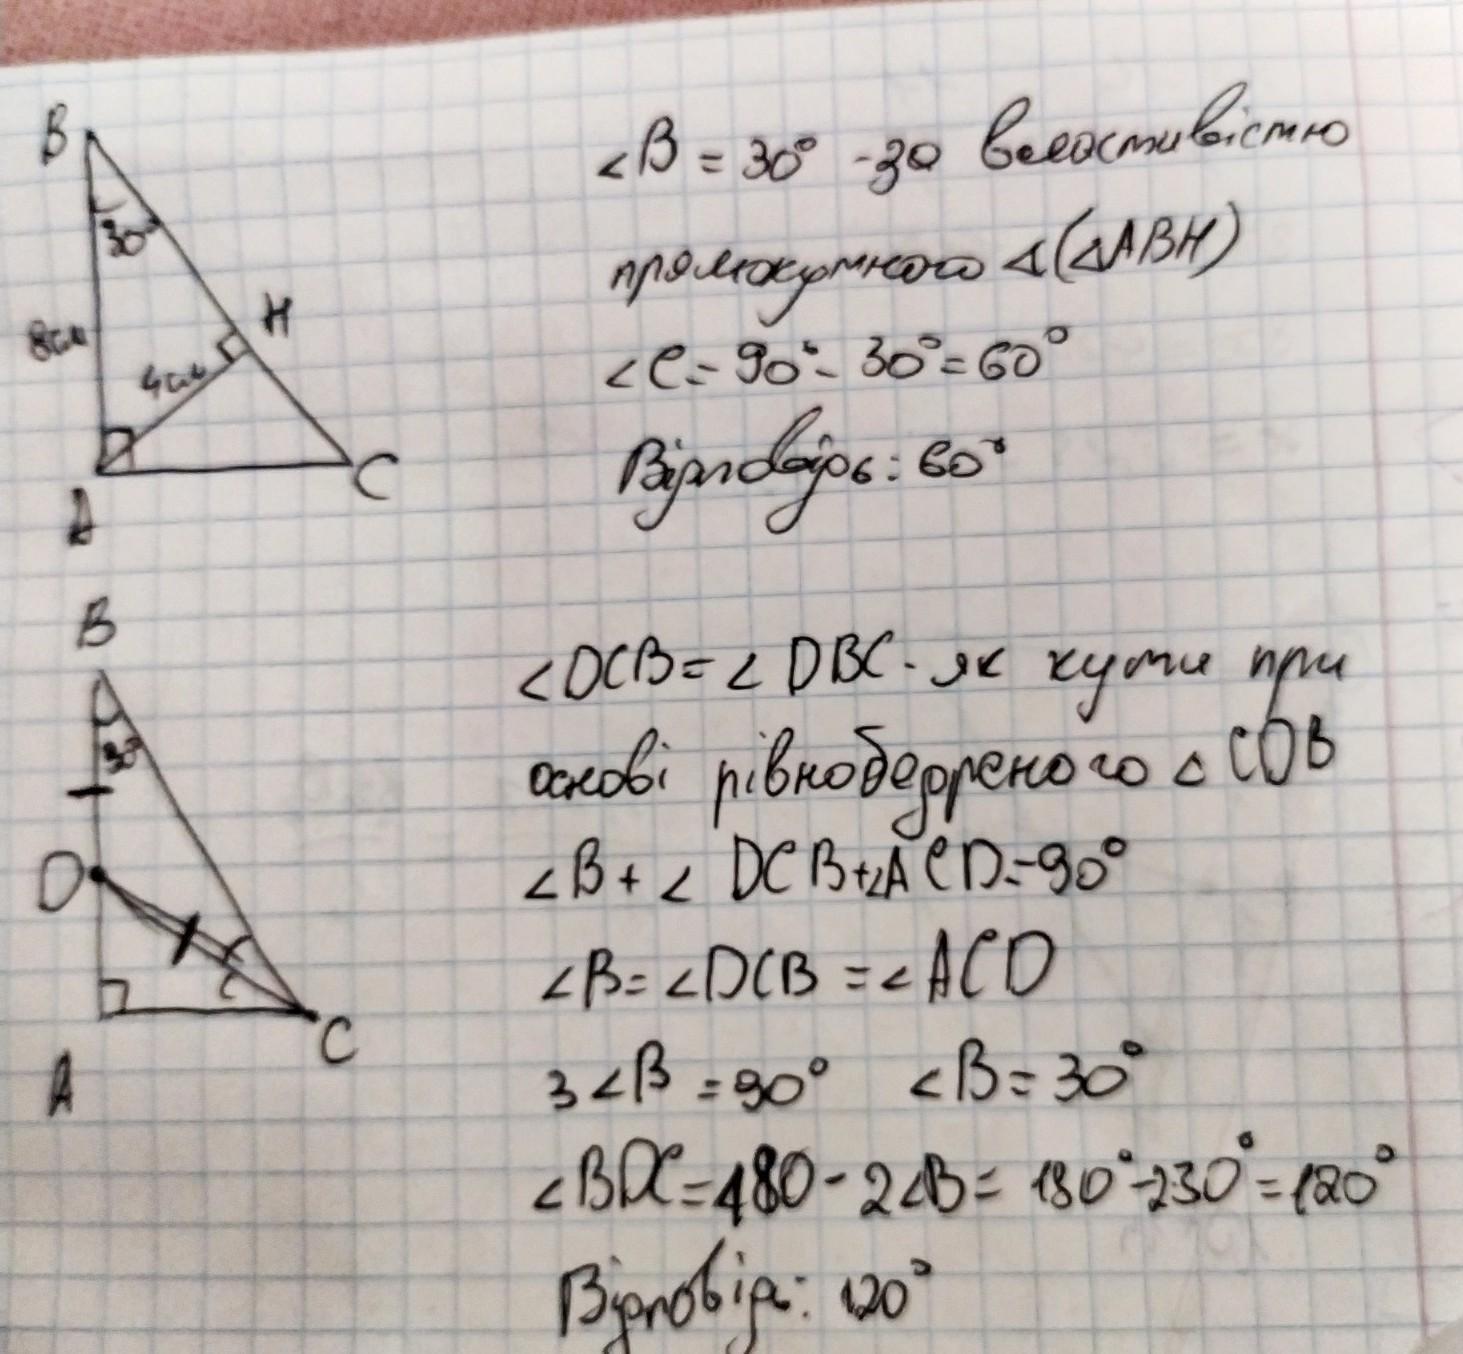 B
30°
8см
H
4см
A
C
∠B = 30° - за властивістю
прямокутного Δ(ΔABH)
∠C = 90° - 30° = 60°
Відповідь: 60°
B
30°
D
A
C
∠DCB = ∠DBC - як кути при
основі рівнобедреного Δ CDB
∠B + ∠DCB + ∠ACD = 90°
∠B = ∠DCB = ∠ACD
3∠B = 90° ∠B = 30°
∠BDC = 180 - 2∠B = 180° - 230° = 120°
Відповідь: 120°